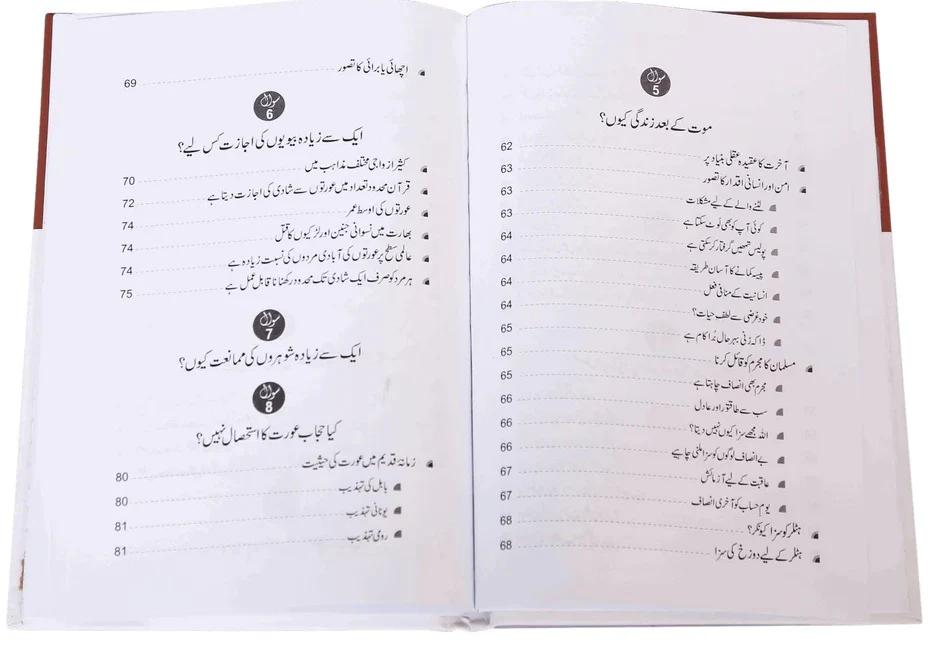 سوال
5
موت کے بعد زندگی کیوں؟
آخرت کا عقیدہ عقلی بنیاد پر 62
امن اور انسانی اقدار کا تصور 63
لٹنے والے کے لیے مشکلات 63
کوئی آپ کو بھی لوٹ سکتا ہے 63
پولیس تمھیں گرفتار کر سکتی ہے 64
پیسہ کمانے کا آسان طریقہ 64
انسانیت کے منافی فعل 64
خود غرضی سے لطف حیات؟ 64
ڈاکہ زنی بہر حال بُرا کام ہے 65
مسلمان کا مجرم کو قائل کرنا 65
مجرم بھی انصاف چاہتا ہے 65
سب سے طاقتور اور عادل 66
اللہ مجھے سزا کیوں نہیں دیتا؟ 66
بے انصاف لوگوں کو سزا ملنی چاہیے 66
عاقبت کے لیے آزمائش 67
یوم حساب کو آخری انصاف 67
ہٹلر کو سزا کیونکر؟ 68
ہٹلر کے لیے دوزخ کی سزا 68
اچھائی یا برائی کا تصور 69
سوال
6
ایک سے زیادہ بیویوں کی اجازت کس لیے؟
کثیر ازواجی مختلف مذاہب میں 70
قرآن محدود تعداد میں عورتوں سے شادی کی اجازت دیتا ہے 72
عورتوں کی اوسط عمر 74
بھارت میں نسوانی جنین اور لڑکیوں کا قتل 74
عالمی سطح پر عورتوں کی آبادی مردوں کی نسبت زیادہ ہے 74
ہر مرد کو صرف ایک شادی تک محدود رکھنا ناقابل عمل ہے 75
سوال
7
ایک سے زیادہ شوہروں کی ممانعت کیوں؟
سوال
8
کیا حجاب عورت کا استحصال نہیں؟
زمانۂ قدیم میں عورت کی حیثیت 80
بابل کی تہذیب 80
یونانی تہذیب 81
رومی تہذیب 81